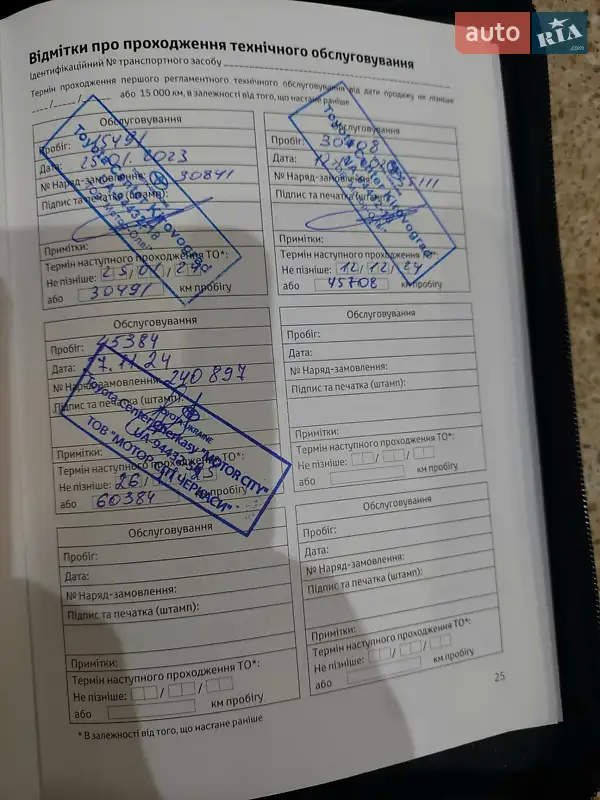 auto RIA .com
Відмітки про проходження технічного обслуговування
Ідентифікаційний № транспортного засобу
Термін проходження першого регламентного технічного обслуговування від дати продажу не пізніше
__/__/__ або 15 000 км, в залежності від того, що настане раніше
Обслуговування
Пробіг: 15491
Дата: 25.01.2023
№ Наряд-замовлення: 30841
Підпис та печатка (штамп):
Примітки:
Термін наступного проходження ТО*:
Не пізніше: 25/01/24
або 30491 км пробігу
Обслуговування
Пробіг: 30708
Дата: 12.
№ Наряд-замовлення:
Підпис та печатка (штамп):
Toyota Center Kirovograd
Примітки:
Термін наступного проходження ТО*:
Не пізніше: 12/12/24
або 45708 км пробігу
Обслуговування
Пробіг: 45384
Дата: 27.11.24
№ Наряд-замовлення: 240897
Підпис та печатка (штамп):
TOYOTA UKRAINE
Toyota Center Cherkasy "MOTOR CITY"
ТОВ "МОТОР СІТІ ЧЕРКАСИ"
Примітки:
Термін наступного проходження ТО*:
Не пізніше: 26/
або 60384 км пробігу
Обслуговування
Пробіг:
Дата:
№ Наряд-замовлення:
Підпис та печатка (штамп):
Примітки:
Термін наступного проходження ТО*:
Не пізніше: / /
або км пробігу
Обслуговування
Пробіг:
Дата:
№ Наряд-замовлення:
Підпис та печатка (штамп):
Примітки:
Термін наступного проходження ТО*:
Не пізніше: / /
або км пробігу
Обслуговування
Пробіг:
Дата:
№ Наряд-замовлення:
Підпис та печатка (штамп):
Примітки:
Термін наступного проходження ТО*:
Не пізніше: / /
або км пробігу
* В залежності від того, що настане раніше
25